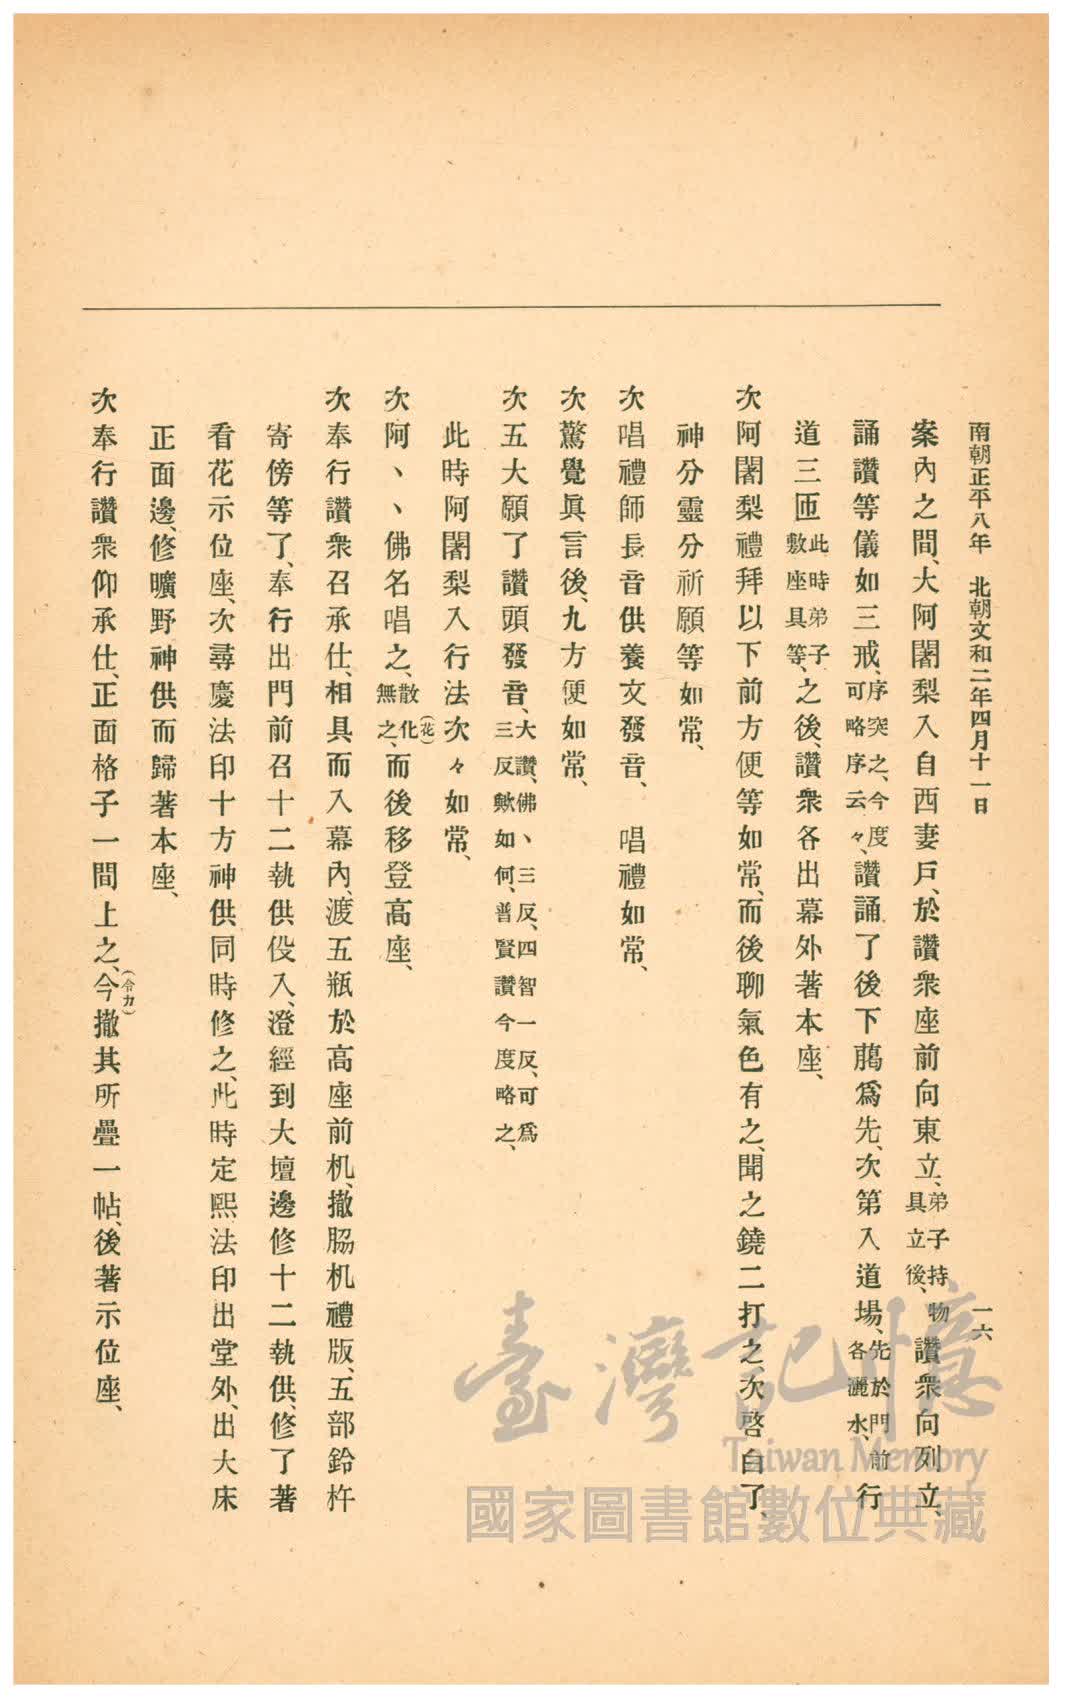 南朝正平八年　北朝文和二年四月十一日
一六
案內之間、大阿闍梨入自西妻戶、於讃衆座前向東立、弟子持物具立後、讃衆向列立、
誦讃等儀如三戒、序突之、今度可略序云々、讃誦了後下﨟爲先、次第入道場、先於門前各灑水、行
道三匝此時弟子敷座具等、之後、讃衆各出幕外著本座、
次阿闍梨禮拜以下前方便等如常、而後聊氣色有之、聞之鐃二打之、次啓白了、
神分靈分祈願等如常、
次唱禮師長音供養文發音、　唱禮如常、
次驚覺眞言後、九方便如常、
次五大願了讃頭發音、大讃、佛、三反、四智一反、可爲三反歟如何、普賢讃今度略之、
此時阿闍梨入行法次々如常、
次阿ヽヽ佛名唱之、散化(花)無之、而後移登高座、
次奉行讃衆召承仕、相具而入幕內、渡五瓶於高座前机、撤脇机禮版、五部鈴杵
寄傍等了、奉行出門前召十二執供伇入、澄經到大壇邊修十二執供、修了著
看花示位座、次尋慶法印十方神供同時修之、此時定熙法印出堂外、出大床
正面邊、修曠野神供而歸著本座、
次奉行讃衆仰承仕、正面格子一間上之、今(令カ)撤其所疊一帖、後著示位座、
臺灣記憶
Taiwan Memory
國家圖書館數位典藏